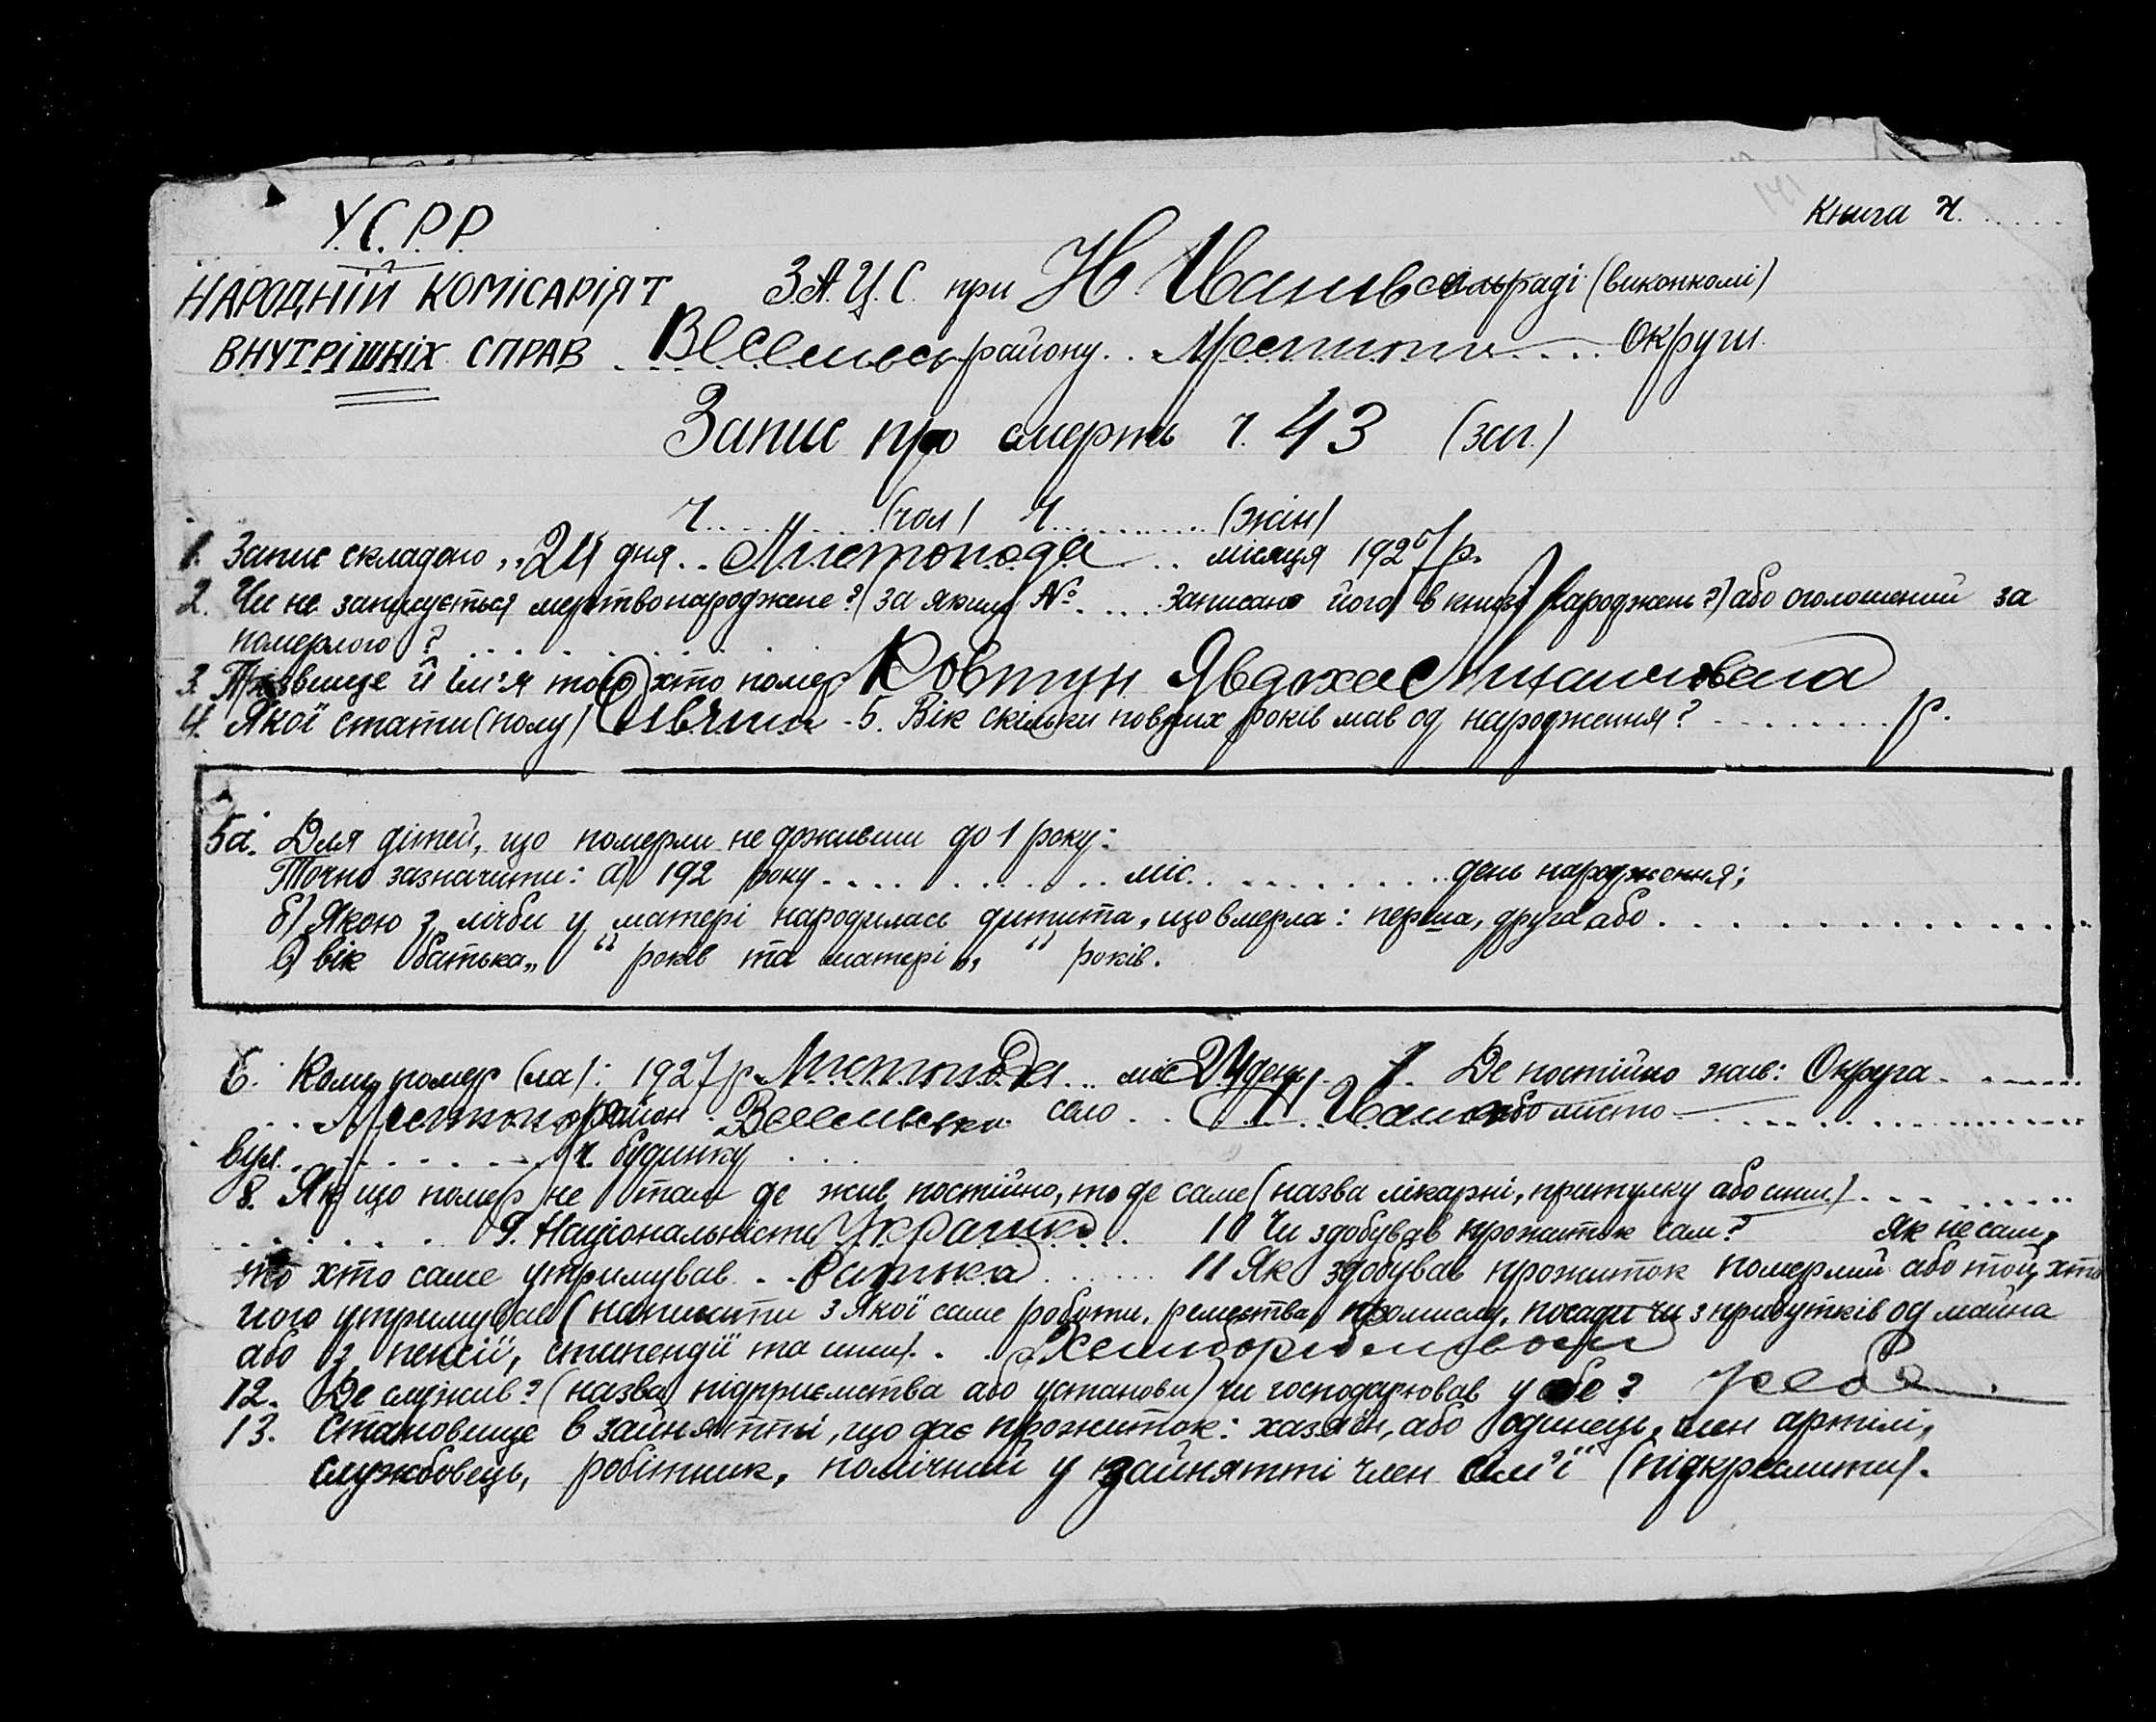 У.С.Р.Р.
Книга Ч. . . . . .
НАРОДНІЙ КОМІСАРІЯТ З.А.Ц.С. при Н Иванів сільраді (виконкомі)
ВНУТРІШНІХ СПРАВ . . . Веселись району . . . . . . Округи
Запис про смерть ч. 43 (заг.)
ч. . . . . . (чол) ч. . . . . . . . . (жін)
1. Запис складено „24 дня . . Листопада . . . місяця 1927 р.
2. Чи не записується мертвонароджене? (за яким № . . . . записано його в книзі народжень?) або оголошений за
померлого? . . . . . . .
3. Прізвище й ім'я того хто помер Ковтун Явдоха
4. Якої стати (полу) Дивчина - 5. Вік скільки повних років мав од народження? . . . . . . . . . р.
5а. Для дітей, що померли не доживши до 1 року:
Точно зазначити: а) 192 року . . . . . . . . . . міс. . . . . . . . . . день народження;
б) Якою з лічби у матері народилась дитита, що вмерла: перша, друга або . . . . . . . . . . . . . .
в) вік батька „ “ років та матері „ “ років.
6. Коли помер (ла): 1927 р. Листопада . . міс 24 день . 7. Де постійно жив: Округа . . . . . . .
. . . район . Веселиська село . . Н. Ивани або місто . . . . . . . . . . . .
вул. . . . . . . . ч. будинку . . .
8. Як що помер не там де жив постійно, то де саме (назва лікарні, притулку або инш.) . . . . . . .
. . . . . . . 9. Національність Украинка . . . 10 Чи здобував прожиток сам? Як не сам,
то хто саме утримував . . Батька . . . . . . 11 Як здобував прожиток померлий або той, хто
його утримував (написати з якої саме роботи, ремества, промислу, посади чи з прибутків од майна
або з пенсії, стипендії та инш.) . . Хлиборобством
12. Де служив? (назва підприємства або установи) чи господарював у себе? у себе
13. Становище в зайнятті, що дає прожиток: хазяїн, або одинець, член артілі,
службовець, робітник, помічний у зайнятті член сім'ї (підкреслити).